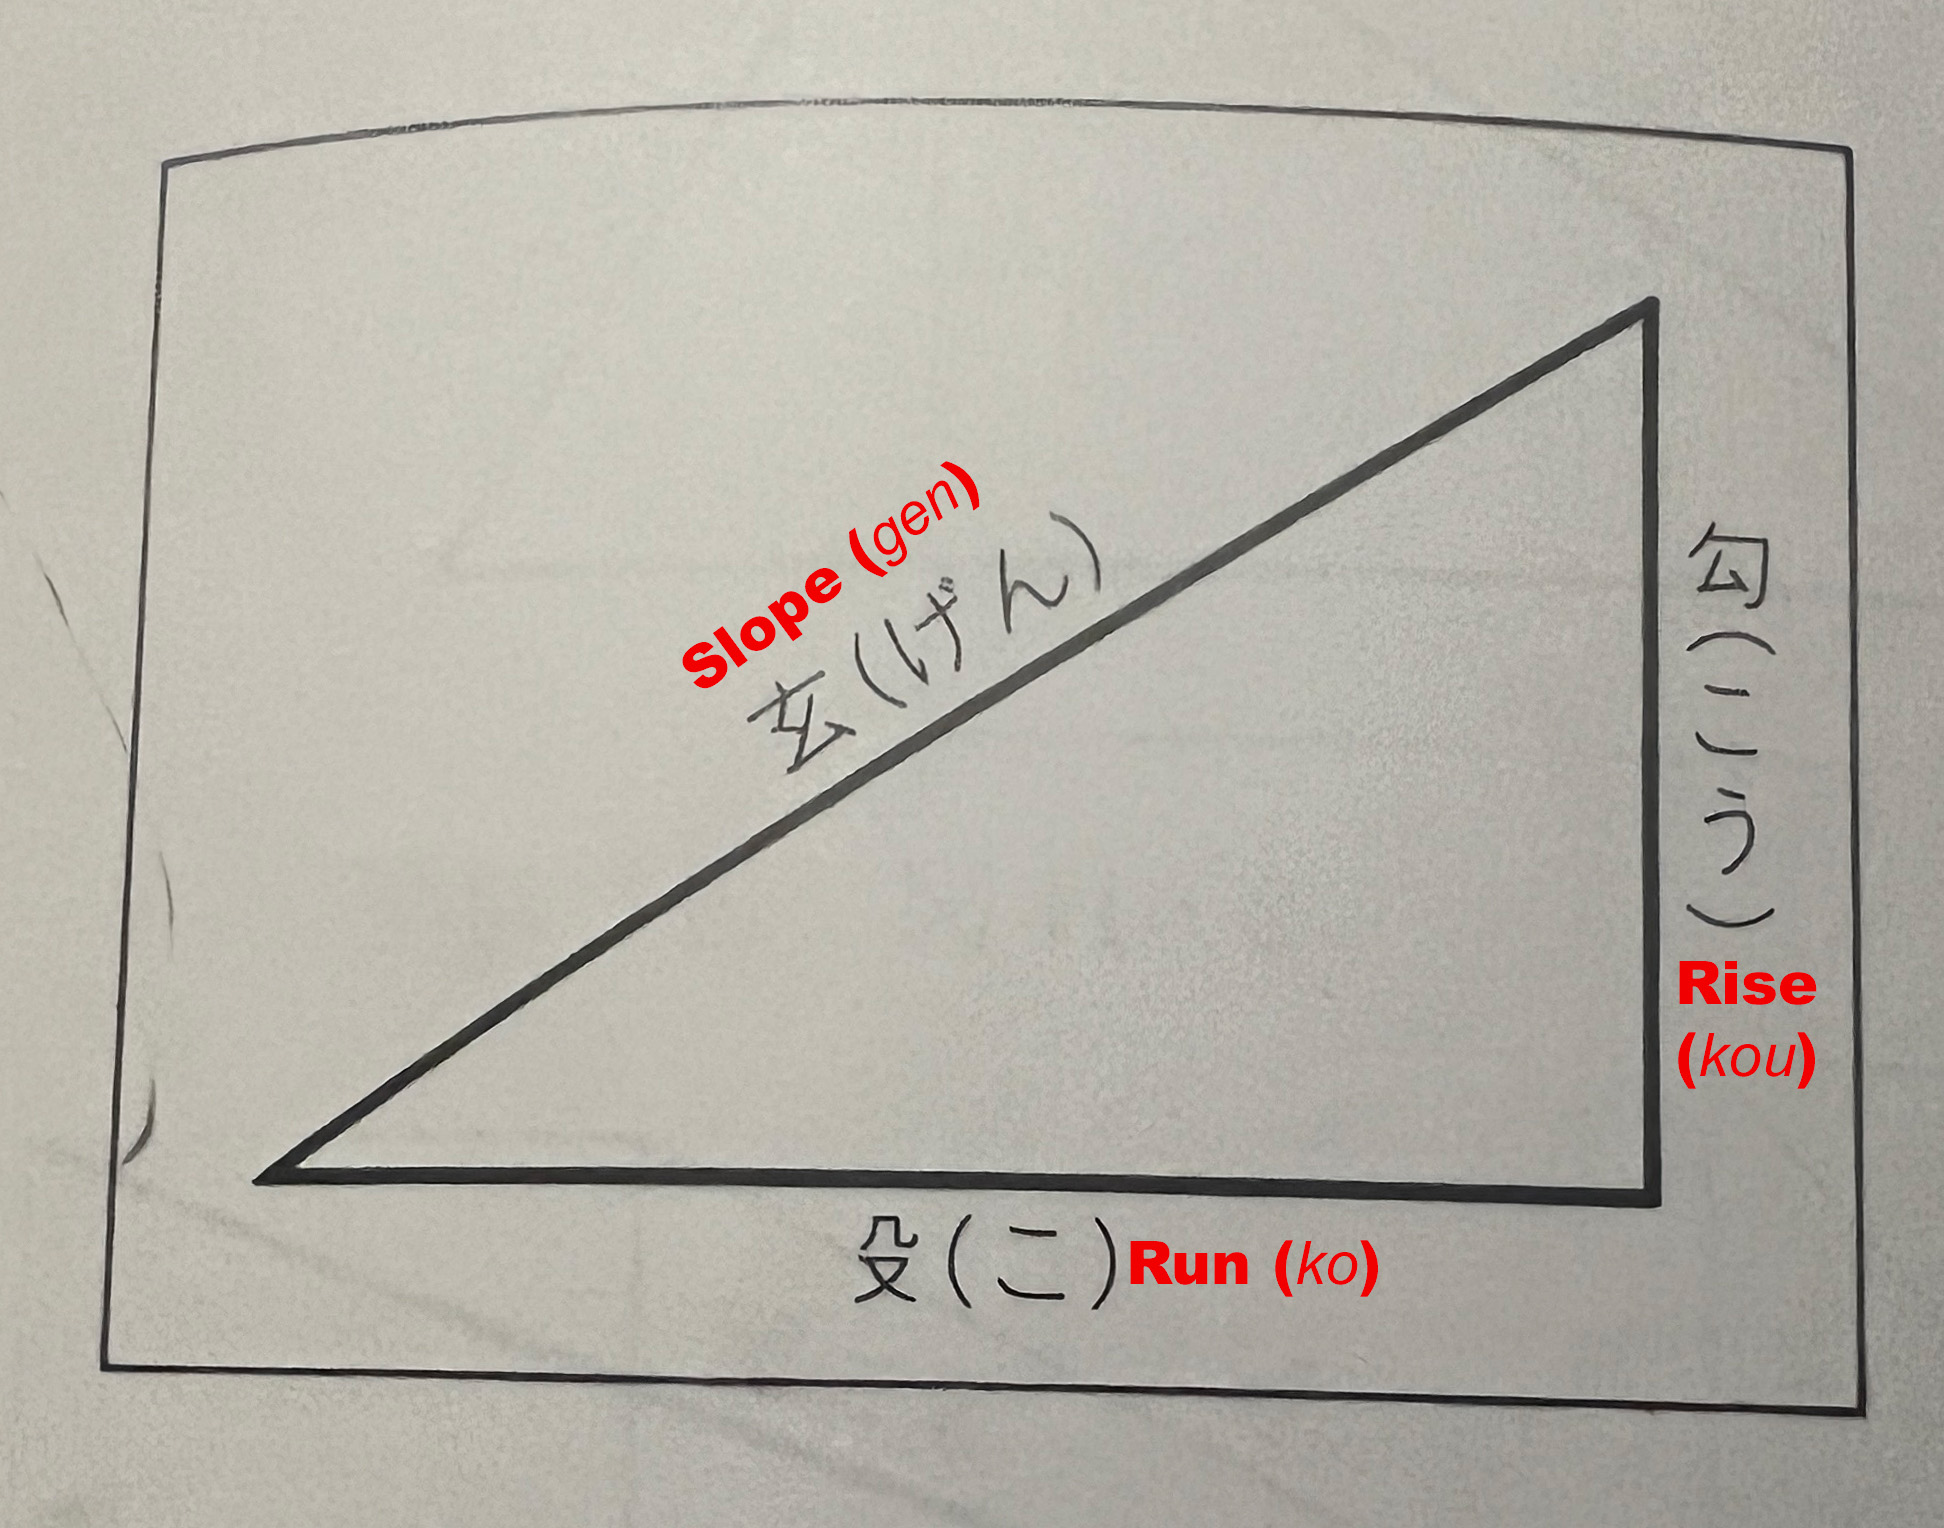 Slope (gen)
玄(げん)
勾(こう)
Rise
(kou)
殳(こ)Run (ko)